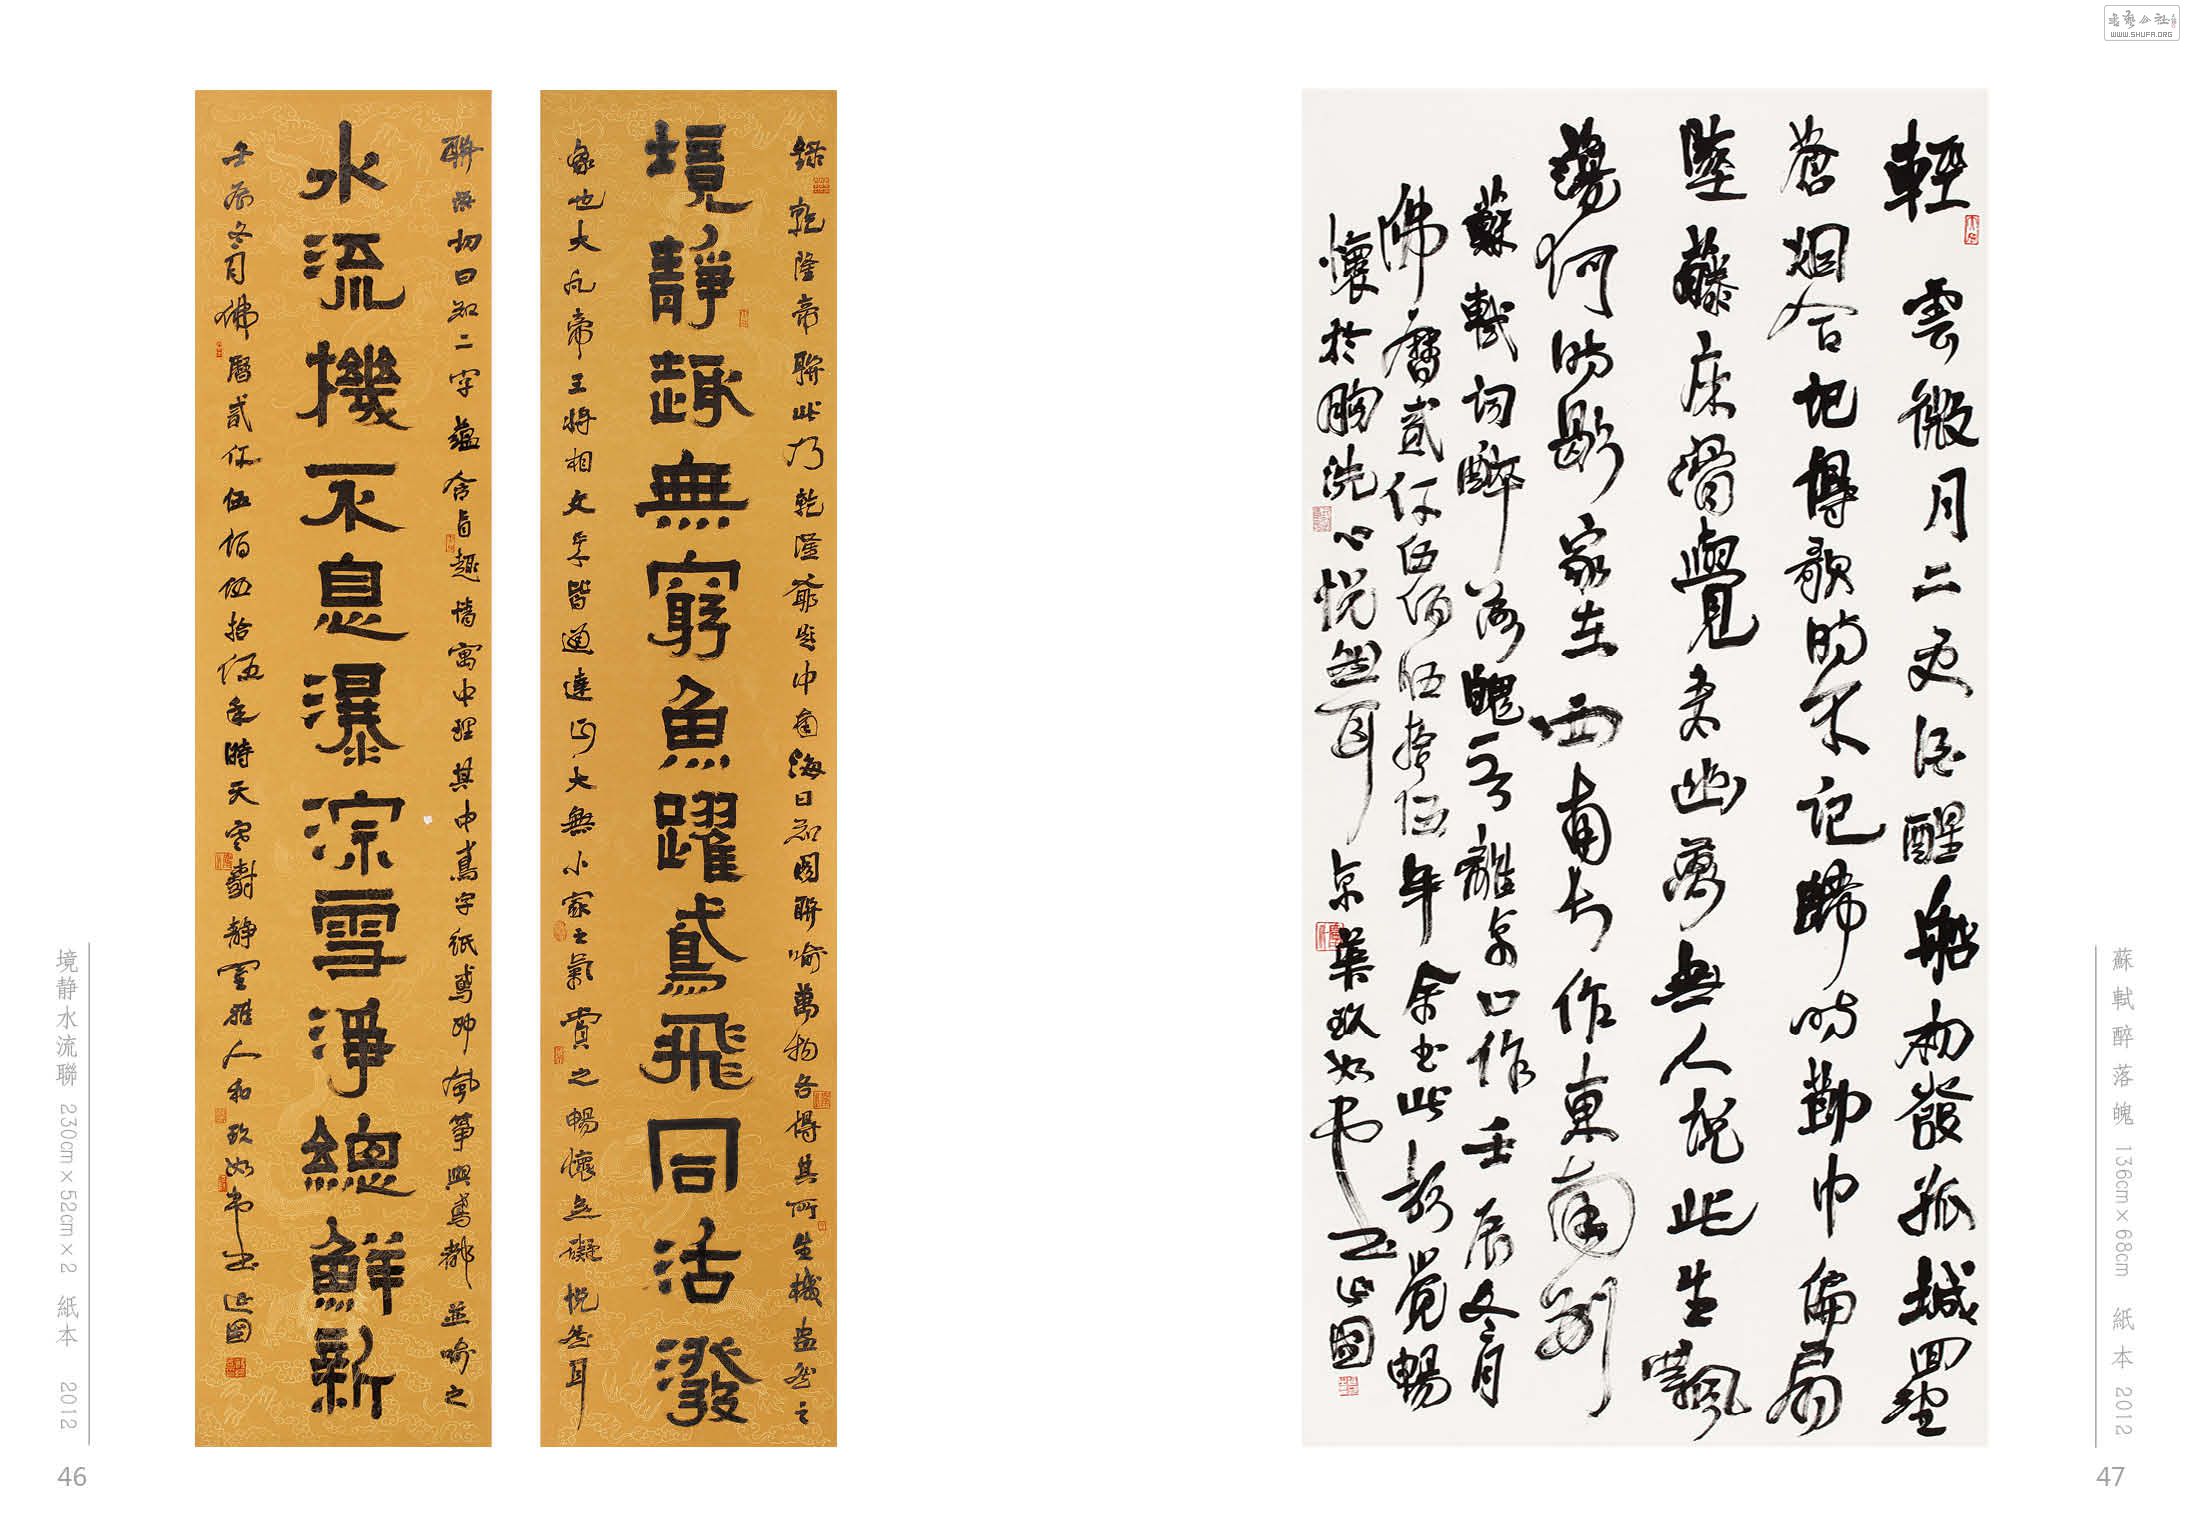 境静水流聯 230cm×52cm×2 紙本 2012
46
錄乾隆帝聯此乃乾隆爺題中南海日知閣聯喻萬物各得其所生機盎然之
境靜趣無窮魚躍鳶飛同活潑
象也大凡帝王將相文采皆通達正大無小家之氣賞之暢懷無礙悅然耳
聯無切日知二字蘊含旨趣情寓中理其中鳶字紙鳶即風箏與鳶都並喻之
水流機不息瀑淙雪淨總鮮新
壬辰冬月佛曆貳仟伍佰伍拾伍年時天寒靜室雅人和玖如書正國
輕雲微月二更酒醒船初發孤城回望
蒼烟合記得歌時不記歸時勸巾偏扇
墜藤床滑覺來幽夢無人說此生飄
蕩何時歇家在西南長作東南別
蘇軾詞醉落魄離京口作壬辰冬月
佛曆貳仟伍佰伍拾伍年余書此頗覺暢
懷於胸洗心悅然耳京華玖如正國
蘇軾醉落魄 136cm×68cm 紙本 2012
47
WWW.SHUFA.ORG